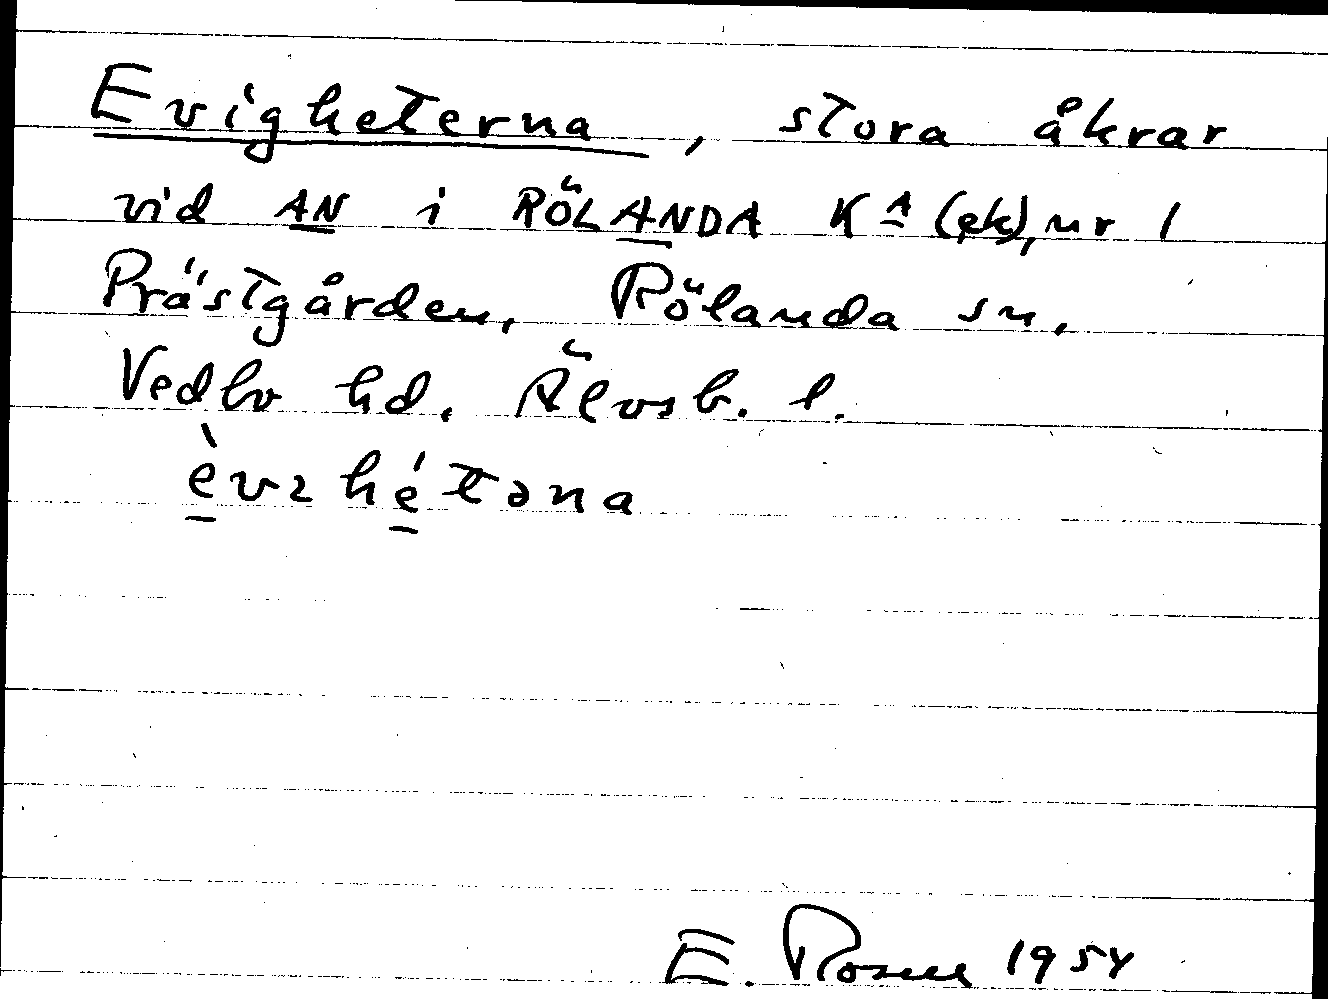 Evigheterna, stora åkrar
vid AN i RÖLANDA KA (ek), nr 1
Prästgården, Rölanda sn,
Vedbo hd. Älvsb. l.
èvɩhétəna
E. Rosell 1954